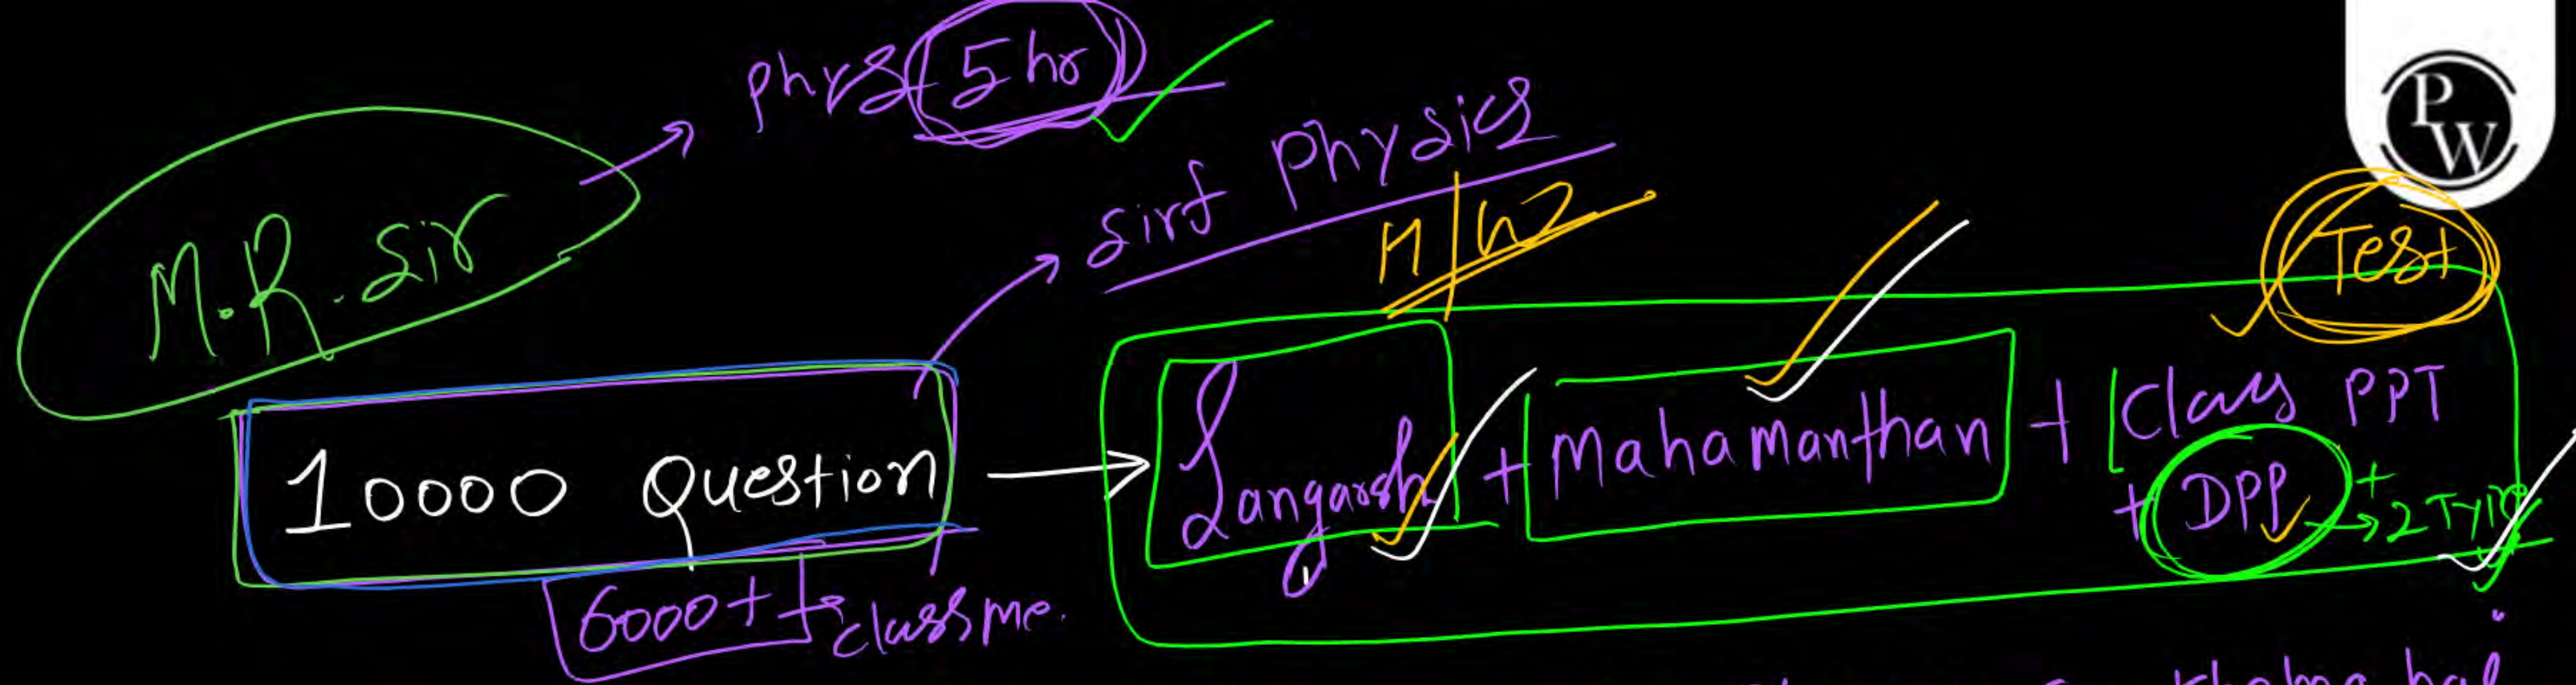 phys 5 hr
PW
M.R. Sir
sirf Physics
Test
10000 Question → Sangarsh + Mahamanthan + Class PPT
+ DPP + → 2 Type
6000+ → class me.
hai